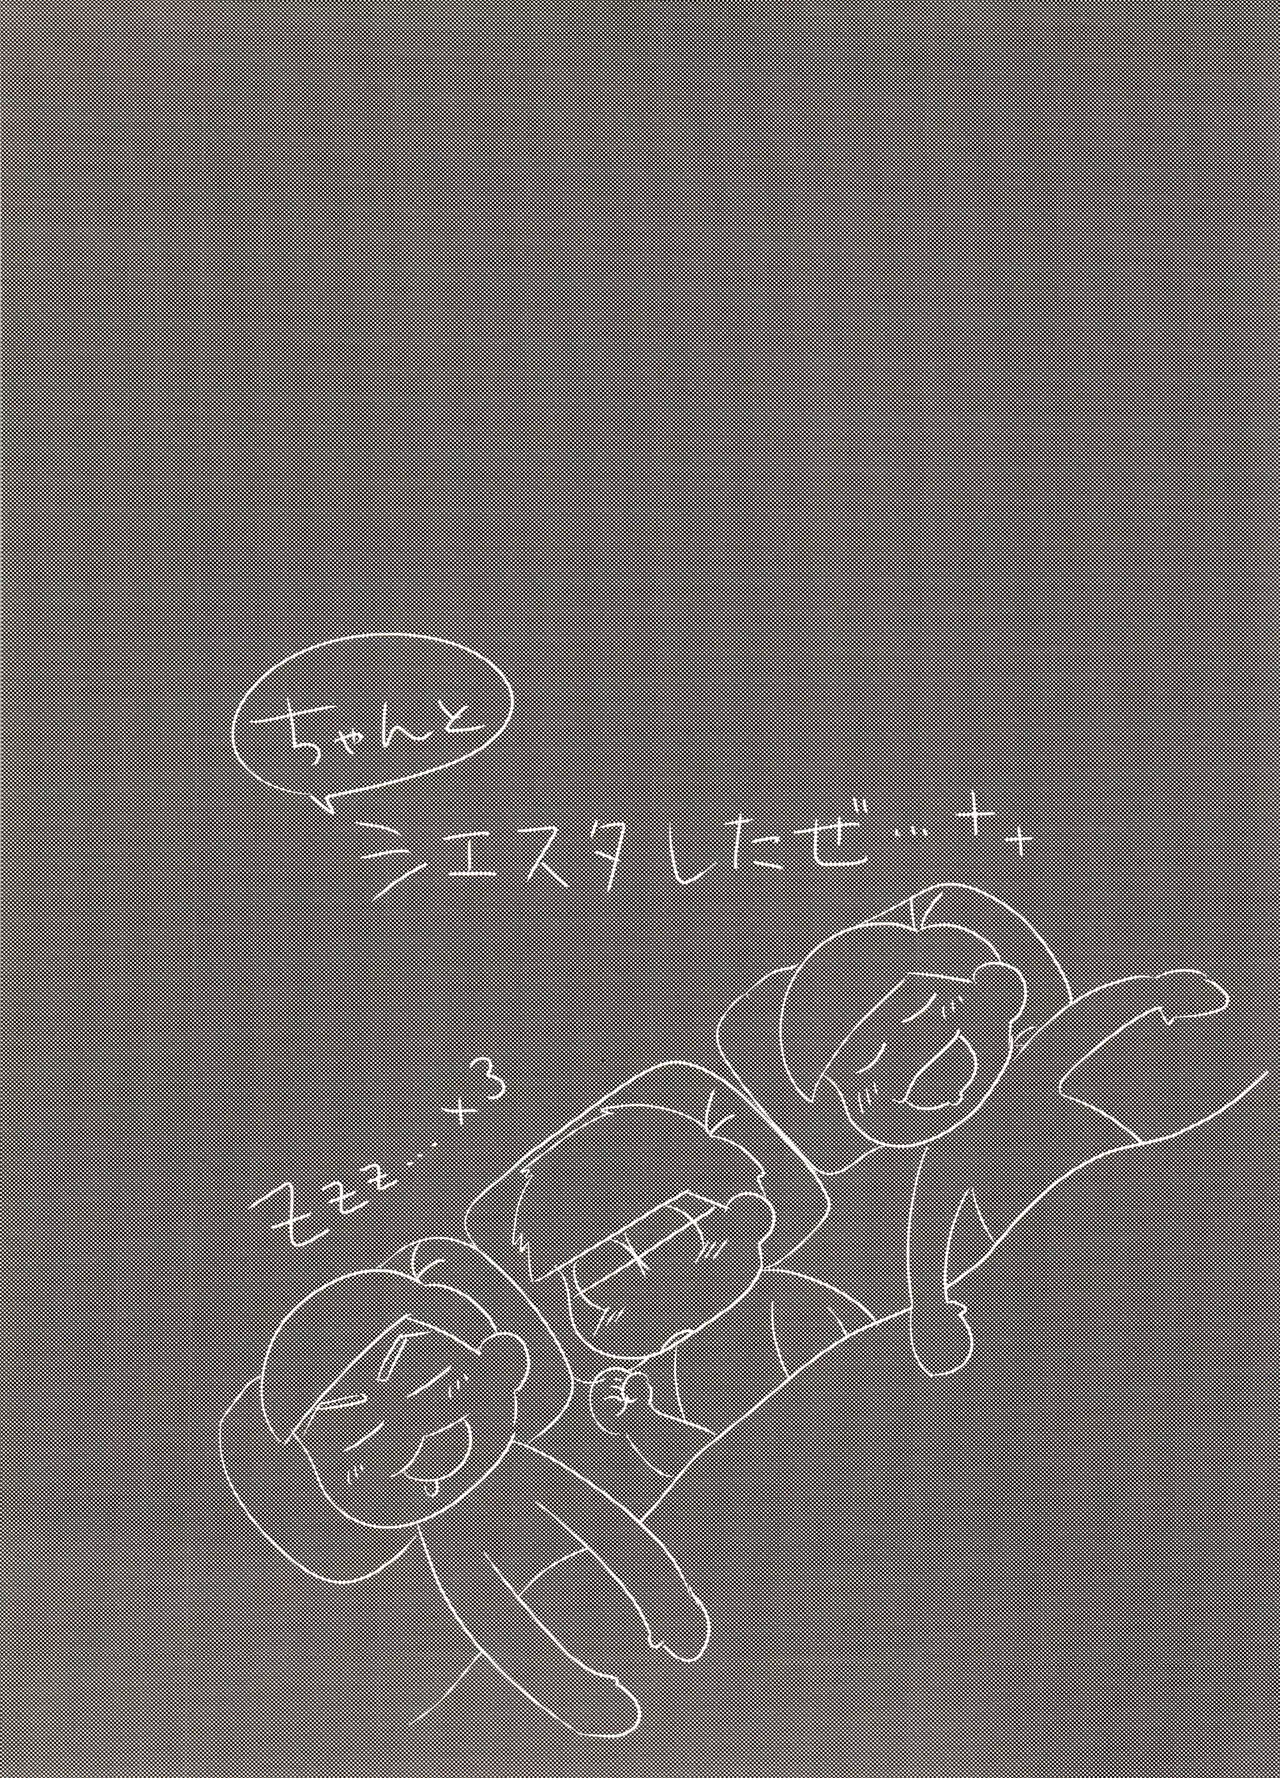 ちゃんと
シエスタしたぜ…
Zzzz…×3